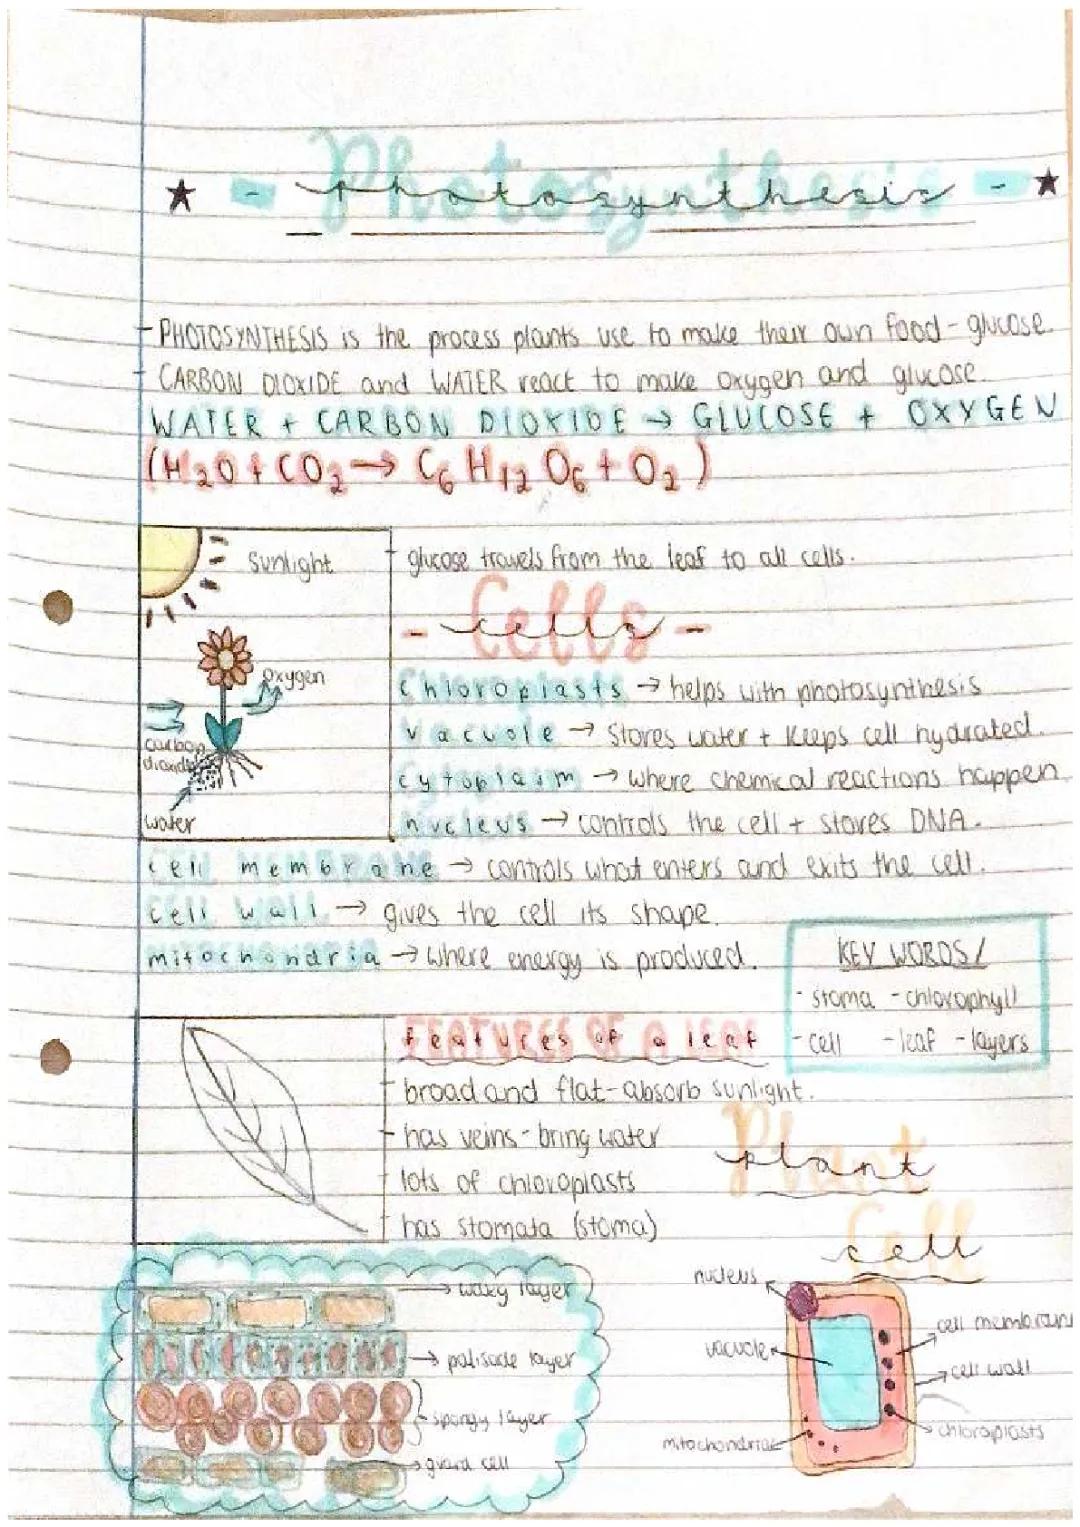 - Photosynthesis -
- PHOTOSYNTHESIS is the process plants use to make their own food - glucose.
- CARBON DIOXIDE and WATER react to make oxygen and glucose.
WATER + CARBON DIOXIDE → GLUCOSE + OXYGEN
(H₂O + CO₂ → C₆H₁₂O₆ + O₂)
sunlight
oxygen
carbon dioxide
water
- glucose travels from the leaf to all cells.
- Cells -
Chloroplasts → helps with photosynthesis
Vacuole → Stores water + keeps cell hydrated.
cytoplasm → where chemical reactions happen.
nucleus → controls the cell + stores DNA.
cell membrane → controls what enters and exits the cell.
cell wall → gives the cell its shape.
mitochondria → where energy is produced.
KEY WORDS/
- stoma - chlorophyll
- cell - leaf - layers
features of a leaf
- broad and flat - absorb sunlight.
- has veins - bring water
- lots of chloroplasts
- has stomata (stoma)
→ waxy layer
→ palisade layer
spongy layer
→ guard cell
Plant
Cell
nucleus
vacuole
mitochondriae
cell membrane
cell wall
chloroplasts